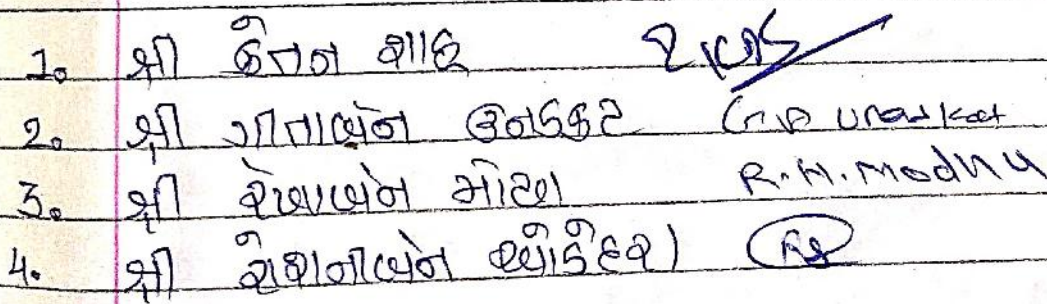 1. શ્રી કેતન શાહ
2. શ્રી ગીતાબેન ઉનડકટ G.P Unadkat
3. શ્રી રેખાબેન મોઢા R.H. Modhu
4. શ્રી રોશનીબેન ઓડેદરા